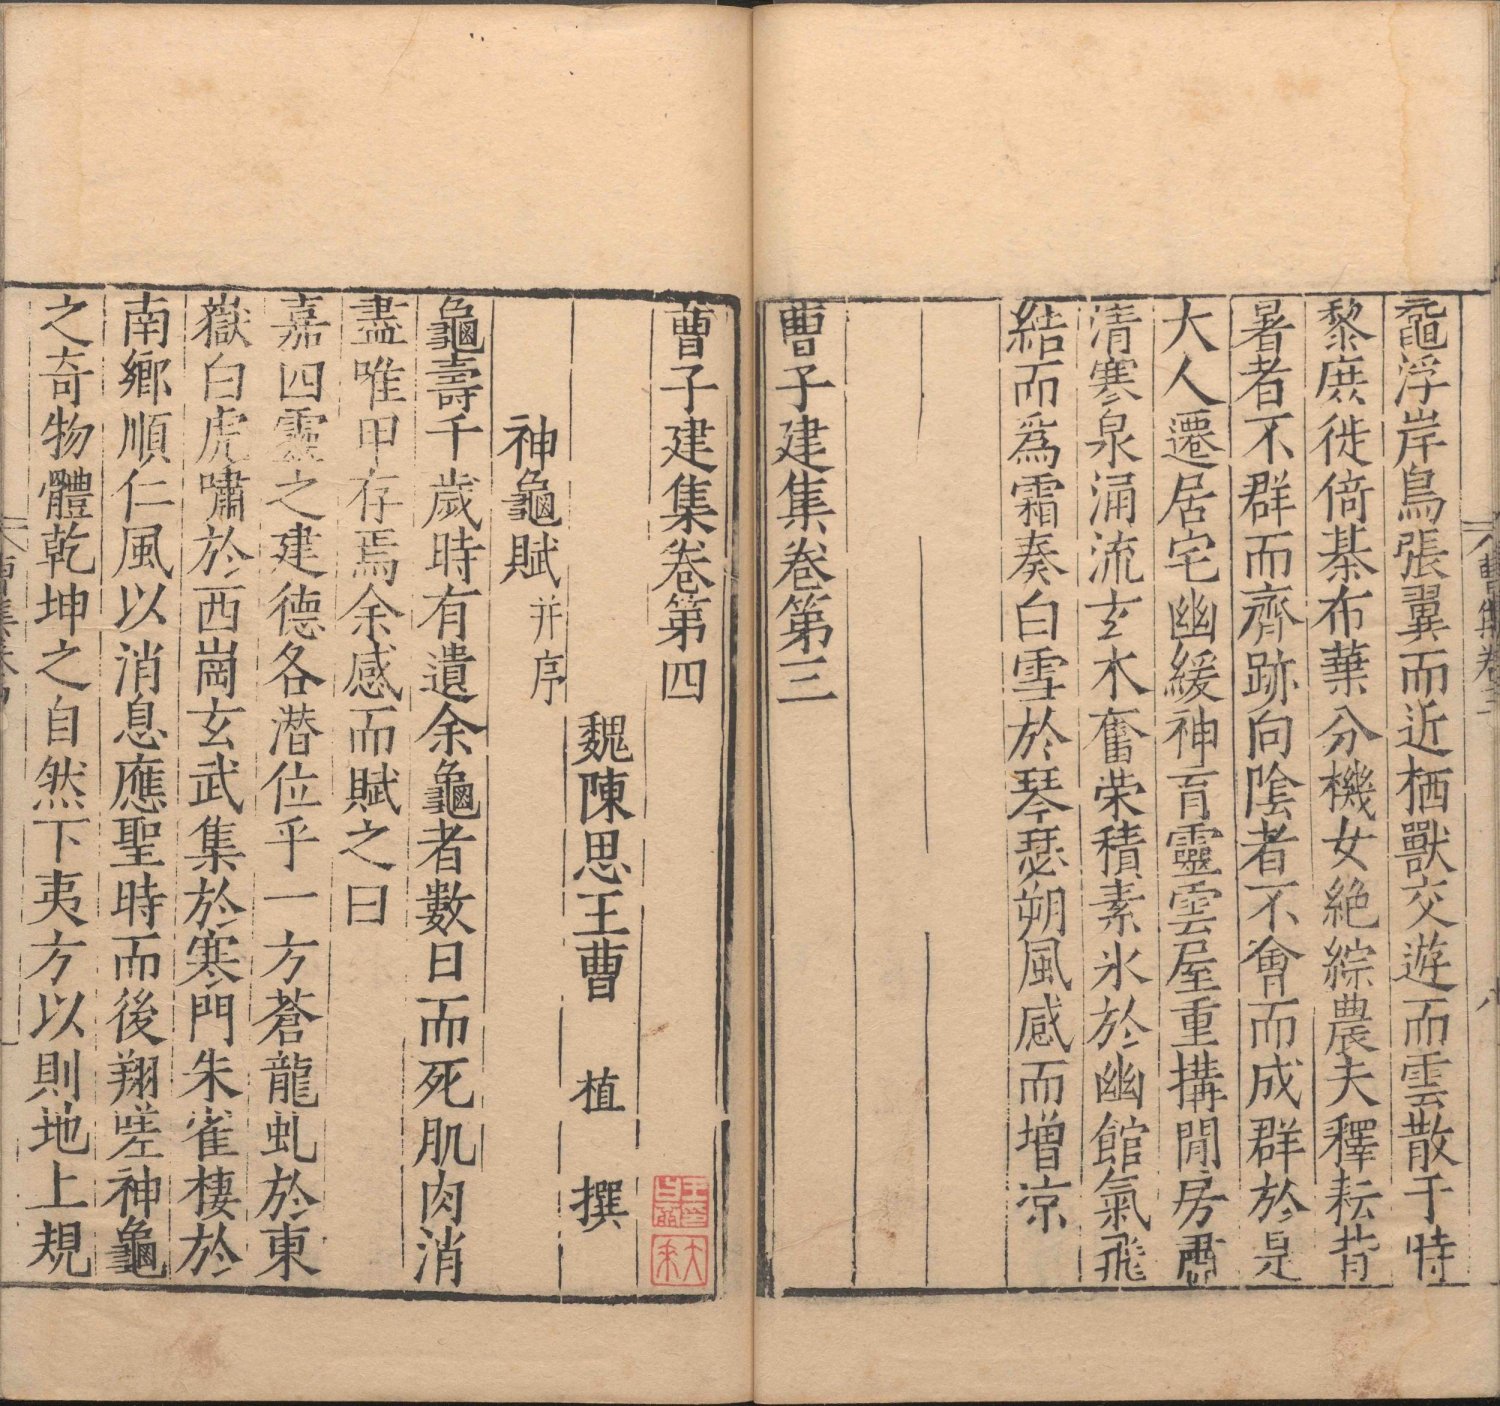 黿浮岸鳥張翼而近栖獸交遊而雲散于時
黎庶徙倚棊布葉分機女絶綜農夫釋耘背
暑者不群而齊跡向陰者不會而成群於是
大人遷居宅幽緩神育靈雲屋重搆閒房肅
清寒泉涌流玄木奮荣積素氷於幽館氣飛
結而爲霜奏白雪於琴瑟朔風感而增凉
曹子建集卷第三
曹集卷三
八
曹子建集卷第四
魏陳思王曹植撰
神龜賦并序
龜壽千歲時有遺余龜者數日而死肌肉消
盡唯甲存焉余感而賦之曰
嘉四靈之建德各潜位乎一方蒼龍虬於東
嶽白虎嘯於西崗玄武集於寒門朱雀棲於
南鄉順仁風以消息應聖時而後翔嗟神龜
之奇物體乾坤之自然下夷方以則地上規